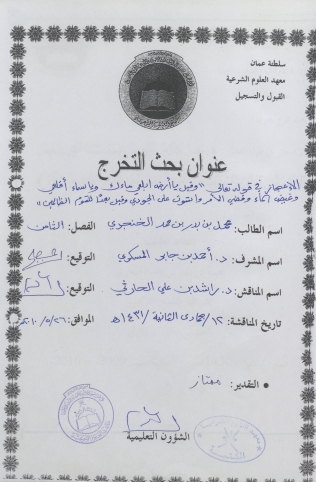 سلطنة عمان
معهد العلوم الشرعية
القبول والتسجيل
عنوان بحث التخرج
الإعجاز في قوله تعالى "وقيل يا أرض ابلعي ماءك ويا سماء أقلعي
وغيض الماء وقضي الأمر واستوت على الجودي وقيل بعدًا للقوم الظالمين"
اسم الطالب: محمد بن بدر بن حمد الخنجري الفصل: الثامن
اسم المشرف: د. أحمد بن جابر المسكري التوقيع:
اسم المناقش: د. راشد بن علي الحارثي التوقيع:
تاريخ المناقشة: ١٢/ جمادى الثانية / ١٤٣١هـ الموافق: ٢٦/٥/٢٠١٠م
• التقدير: ممتاز
الشؤون التعليمية